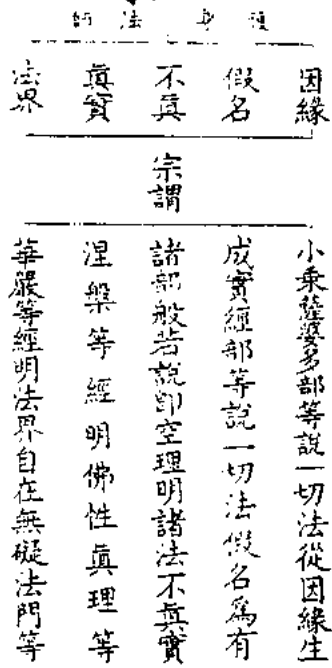 護身法師
因緣
假名
不真
真實
法界
宗謂
小乘薩婆多部等說一切法從因緣生
成實經部等說一切法假名爲有
諸部般若說卽空理明諸法不真實
涅槃等經明佛性真理等
華嚴等經明法界自在無礙法門等